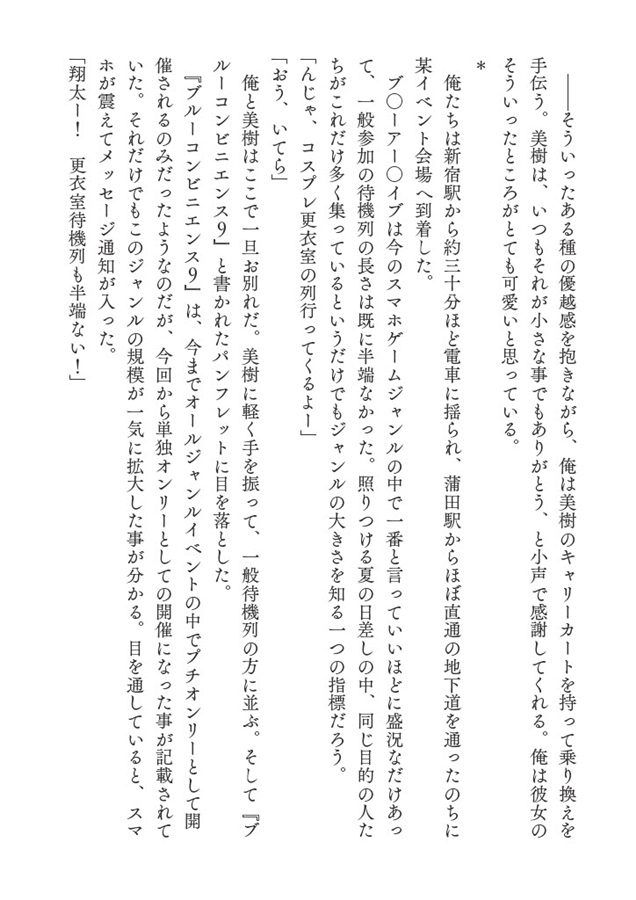 ――そういったある種の優越感を抱きながら、俺は美樹のキャリーカートを持って乗り換えを
手伝う。美樹は、いつもそれが小さな事でもありがとう、と小声で感謝してくれる。俺は彼女の
そういったところがとても可愛いと思っている。
＊
　俺たちは新宿駅から約三十分ほど電車に揺られ、蒲田駅からほぼ直通の地下道を通ったのちに
某イベント会場へ到着した。
　ブ〇ーアー〇イブは今のスマホゲームジャンルの中で一番と言っていいほどに盛況なだけあっ
て、一般参加の待機列の長さは既に半端なかった。照りつける夏の日差しの中、同じ目的の人た
ちがこれだけ多く集っているというだけでもジャンルの大きさを知る一つの指標だろう。
「んじゃ、コスプレ更衣室の列行ってくるよー」
「おう、いてら」
　俺と美樹はここで一旦お別れだ。美樹に軽く手を振って、一般待機列の方に並ぶ。そして『ブ
ルーコンビニエンス９』と書かれたパンフレットに目を落とした。
　『ブルーコンビニエンス９』は、今までオールジャンルイベントの中でプチオンリーとして開
催されるのみだったようなのだが、今回から単独オンリーとしての開催になった事が記載されて
いた。それだけでもこのジャンルの規模が一気に拡大した事が分かる。目を通していると、スマ
ホが震えてメッセージ通知が入った。
「翔太ー！　更衣室待機列も半端ない！」